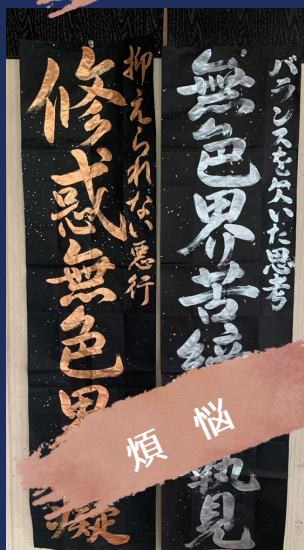 バランスを欠いた思考
無色界苦
見
抑えられない悪行
修惑無色界
癡
煩悩